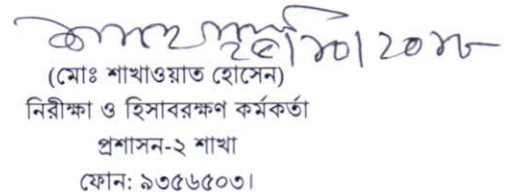 ২৫/১০/২০১৮
(মোঃ শাখাওয়াত হোসেন)
নিরীক্ষা ও হিসাবরক্ষণ কর্মকর্তা
প্রশাসন-২ শাখা
ফোন: ৯৩৫৬৫০৩।